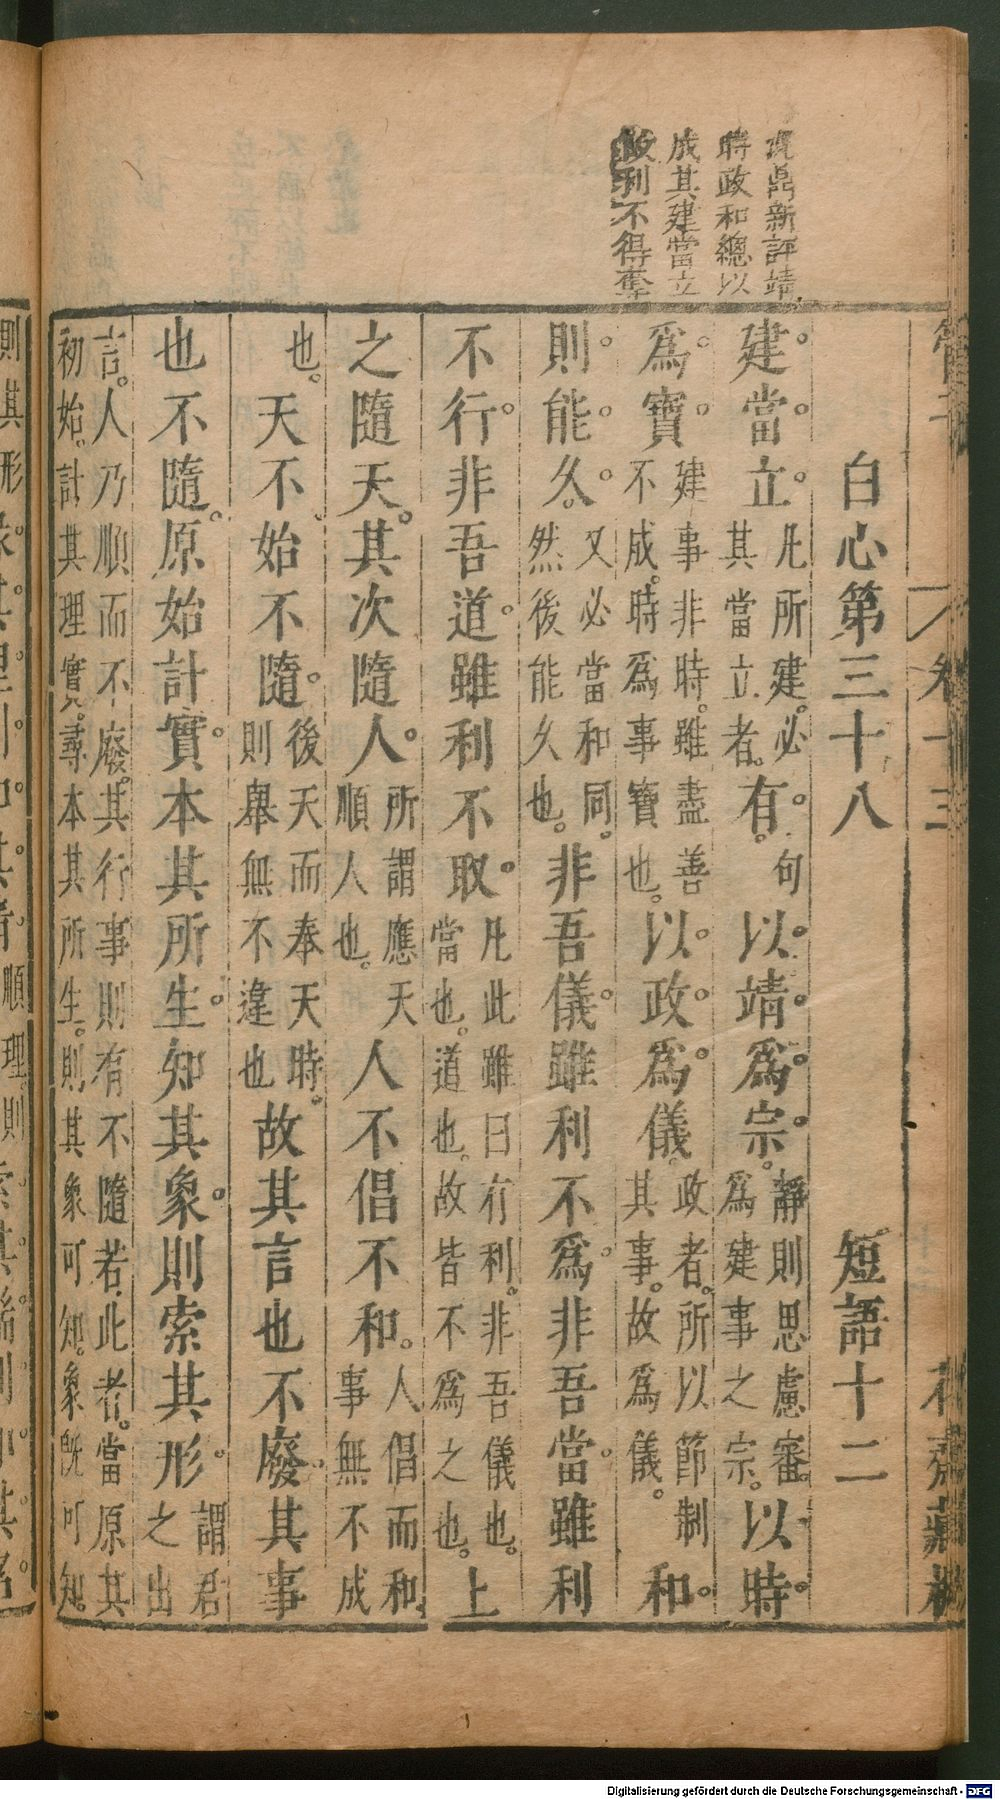 鼎新評靖
時政和總以
成其建當立
故利不得奪
卷十三
白心第三十八 短語十二
建當立凡所建必其當立者有句以靖爲宗靜則思慮審爲建事之宗以時
爲寶建事非時雖盡善不成時爲事寶也以政爲儀政者所以節制其事故爲儀和
則能久又必當和同然後能久也非吾儀雖利不爲非吾當雖利
不行非吾道雖利不取凡此雖曰有利非吾儀也當也道也故皆不爲之也上
之隨天其次隨人所謂應天順人也人不倡不和人倡而和事無不成
也天不始不隨後天而奉天時則舉無不違也故其言也不廢其事
也不隨原始計實本其所生知其象則索其形謂君之出
言人乃順而不廢其行事則有不隨若此者當原其
初始計其理實尋本其所生則其象可知象旣可知
Digitalisierung gefördert durch die Deutsche Forschungsgemeinschaft - DFG